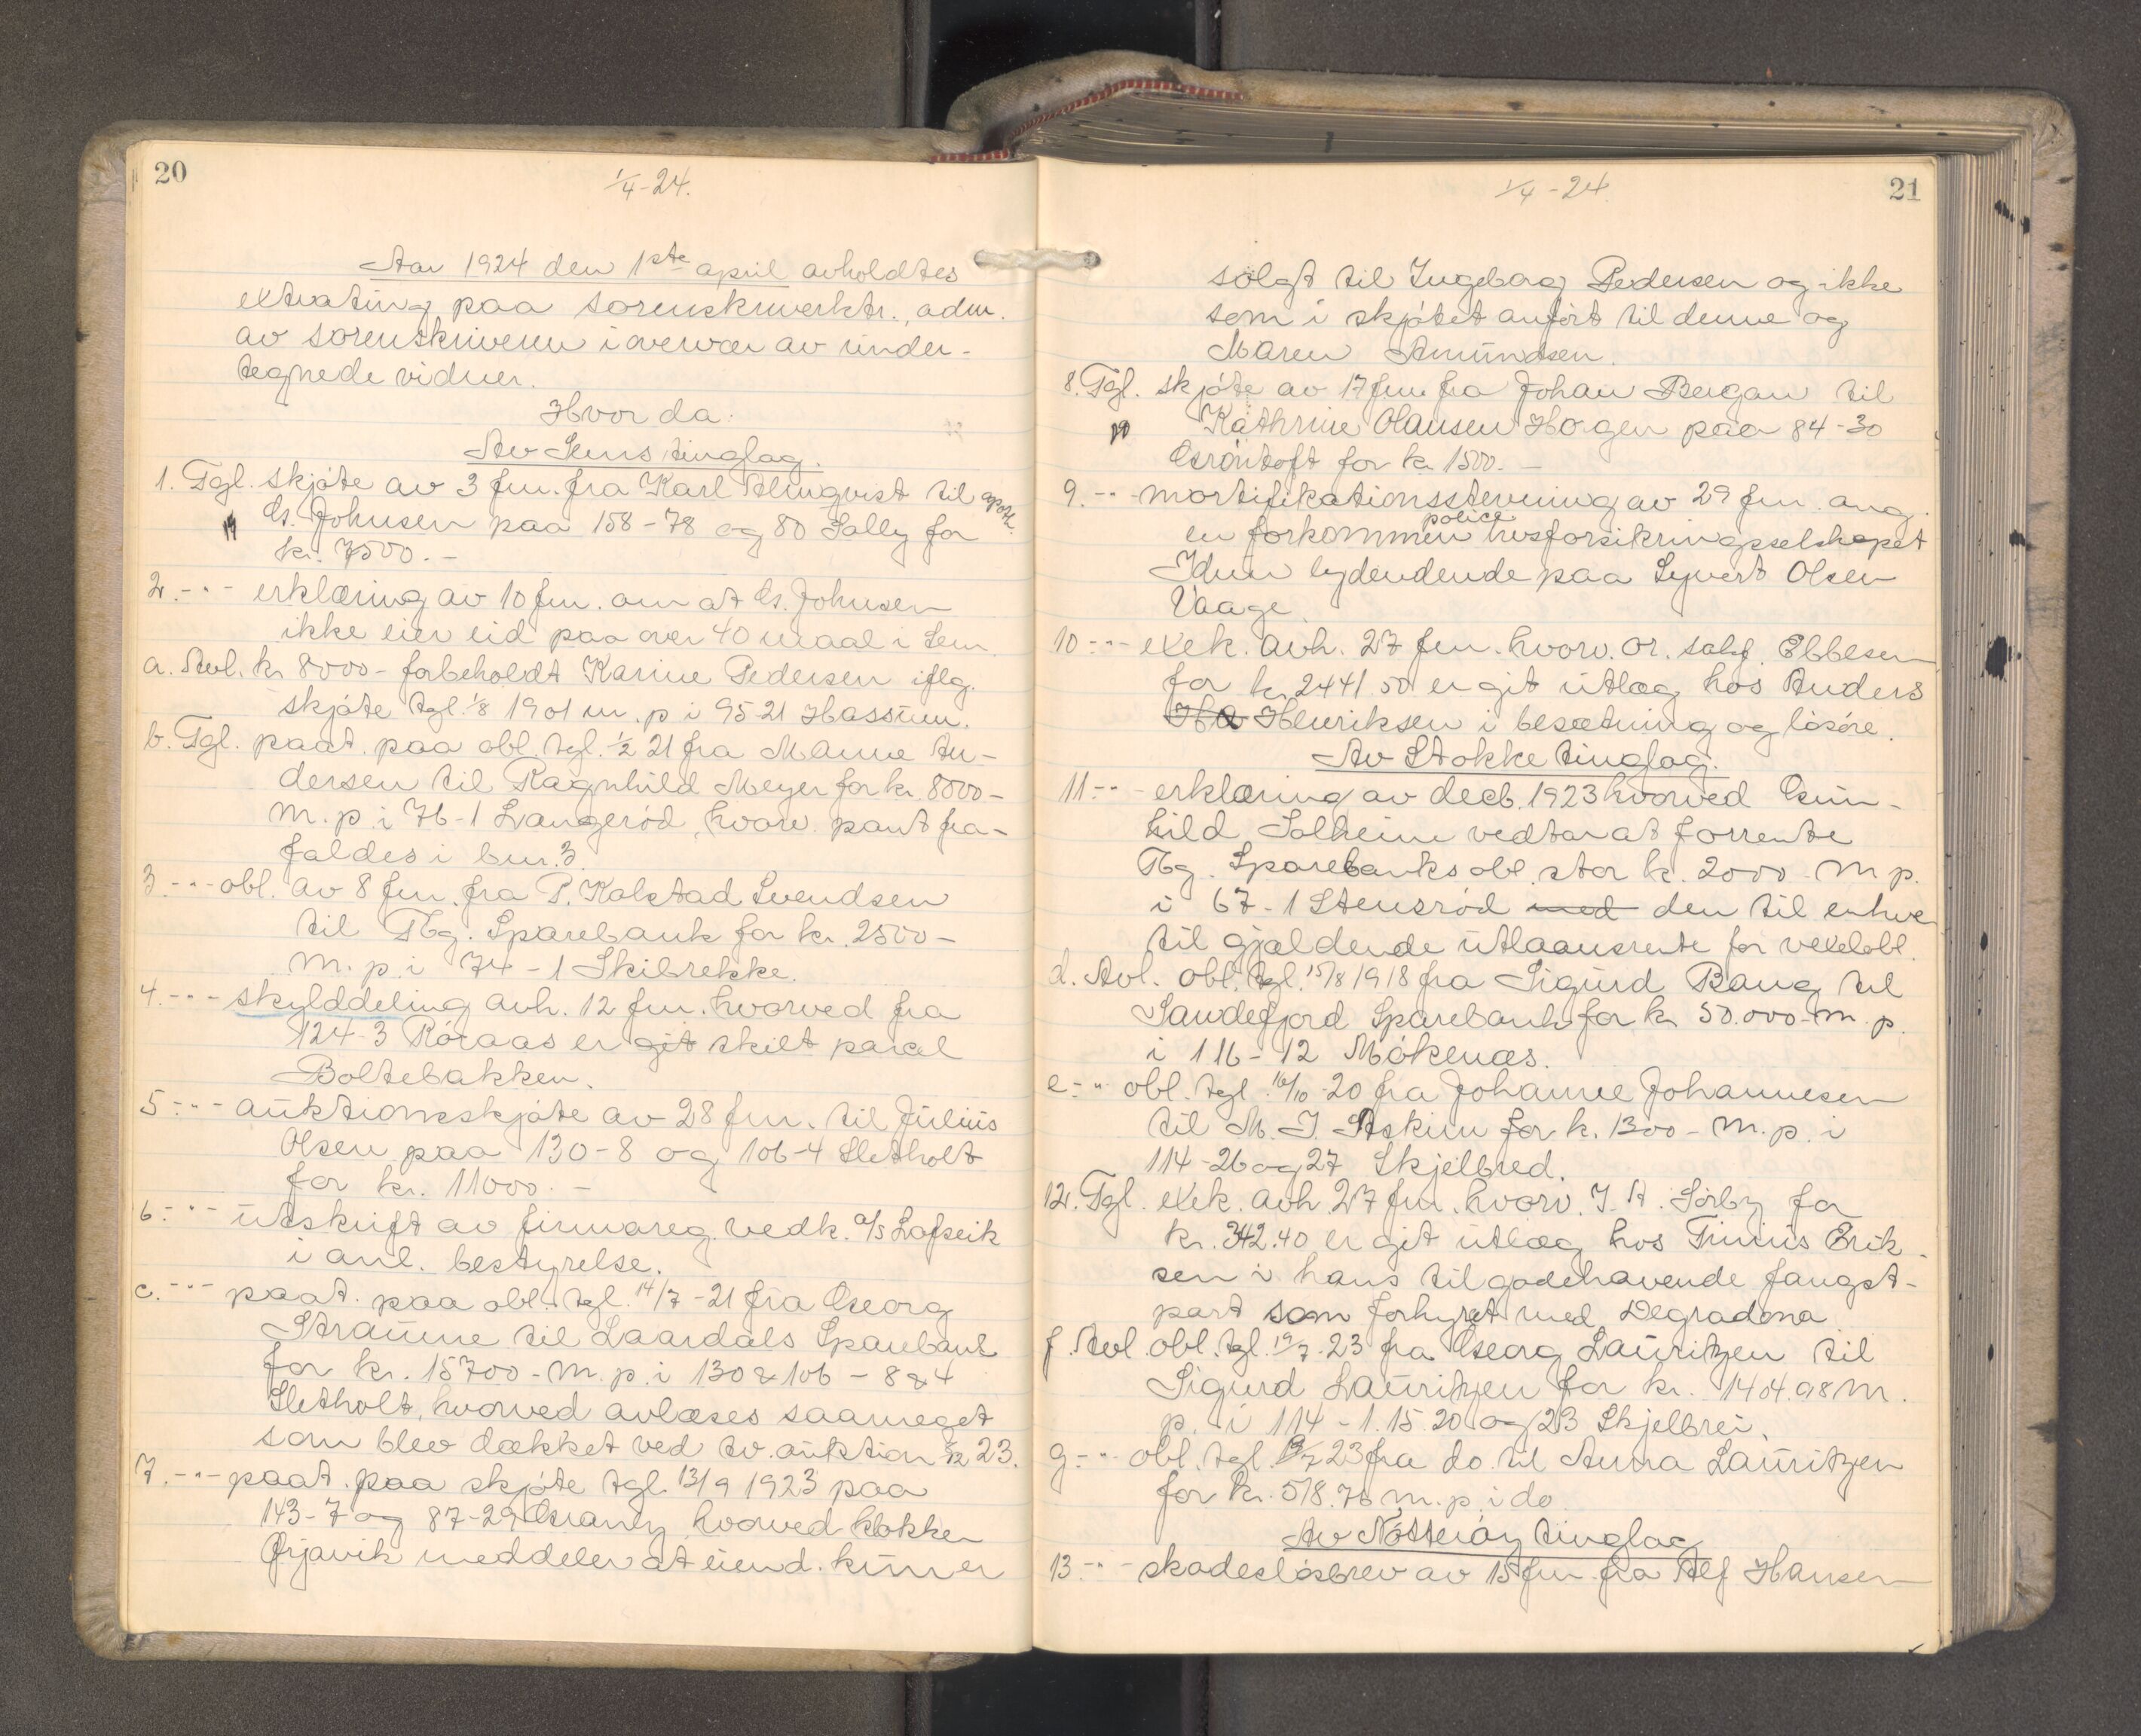 20
1/4-24.
Aar 1924 den 1ste april avholdtes
extrating paa sorenskriverktr., adm.
av sorenskriveren i overvær av under-
tegnede vidner.
Hvor da:
Av Sems tinglag.
1. Tgl. skjøte av 3 fm. fra Karl Almqvist til apot.
G. Johnsen paa 158-78 og 80 Solly for
kr. 7500.-
2.-"- erklæring av 10 fm. om at G. Johnsen
ikke eier eid paa over 40 maal i Sem.
a. Avl. kr 8000- forbeholdt Karine Pedersen iflg.
skjøte tgl. 1/8 1901 m. p i 95-21 Hassum.
b. Tgl. paat. paa obl. tgl. 1/2 21 fra M Anne An-
dersen til Ragnhild Meyer for kr. 8000-
m. p. i 76-1 Langerød, hvorv. pant fra-
faldes i bnr. 3.
3.-"- obl. av 8 fm. fra P. Kolstad Svendsen
til Tbg. Sparebank for kr. 2500-
m. p. i 74-1 Skibrekke.
4.-"- skylddeling avh. 12 fm. hvorved fra
124-3 Røraas er git skilt parcel
Boltebakken.
5-"- auktionsskjøte av 28 fm. til Julius
Olsen paa 130-8 og 106-4 Sletholt
for kr. 11000.-
6-"- utskrift av firmareg. vedk. a/s Lofseik
i anl. bestyrelse.
c.-"- paat. paa obl. tgl. 14/7-21 fra Georg
Straume til Laardals Sparebank
for kr. 15700- m. p. i 130 & 106 - 8 & 4
Sletholt, hvorved avlæses saameget
som blev dækket ved tv. auktion 23.
7.-"- paat. paa skjøte tgl. 13/9 1923 paa
143-7 og 87-29 Granly hvorved klokker
Ørjavik meddeler at eiend. kun er
1/4-24.
21
solgt til Ingeborg Pedersen og ikke
som i skjøtet anført til denne og
Maren Amundsen.
8. Tgl. skjøte av 17 fm. fra Johan Bergan til
Kathrine Olausen Hogen paa 84-30
Grøntoft for kr. 1500.-
9.-"- mortifikationsstevning av 29 fm. ang.
en forkommen police livsforsikringsselskapet
Idun lydendende paa Syvert Olsen
Vaage.
10-"- exek. avh. 27 fm. hvorv. or. sakf. Ebbesen
for kr. 2441.50 er git utlæg hos Anders
Ha Henriksen i besætning og løsøre.
Av Stokke tinglag.
11-"- erklæring av decb. 1923 hvorved Gun-
hild Solheim vedtar at forrente
Tbg. Sparebanks obl. stor kr. 2000- m. p.
i 67-1 Stensrød med den til enhver
til gjældende utlaansrente for vexelobl.
d. Avl. obl. tgl. 15/8 1918 fra Sigurd Bang til
Sandefjord Sparebank for kr. 50.000- m. p.
i 116-12 Møkenæs.
e-"- obl. tgl. 16/10-20 fra Johanne Johannesen
til M. J. Askim for k. 1300- m. p. i
114-26 og 27 Skjelbred.
12. Tgl. exek. avh 27 fm. hvorv. J. A. Sørby for
kr. 342.40 er git utlæg hos Trinius Erik-
sen i hans tilgodehavende fangst-
part som forhyret med Degradona
f. Avl. obl. tgl. 19/7-23 fra Georg Lauritzen til
Sigurd Lauritzen for kr. 1404.98 m.
p. i 114-1. 15 20 og 23 Skjelbrei.
g-"- obl. tgl. 19/7 23 fra do. til Anna Lauritzen
for kr. 518.76 m. p. i do.
Av Nøtterøy tinglag
13-"- skadesløsbrev av 15 fm. fra Alf Hansen